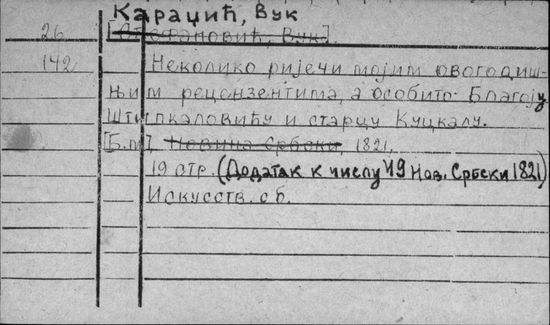 Караџић, Вук
26 [Стефановић, Вук].
142 Неколико ријечи мојим овогодиш-
њим рецензентима, а особито Благоју
Штипкаловићу и старцу Куцкалу.
[Б.м], Новина Србски, 1821,
19 стр. (Додатак к числу 49 Нов. Србски 1821)
Искусств. сб.